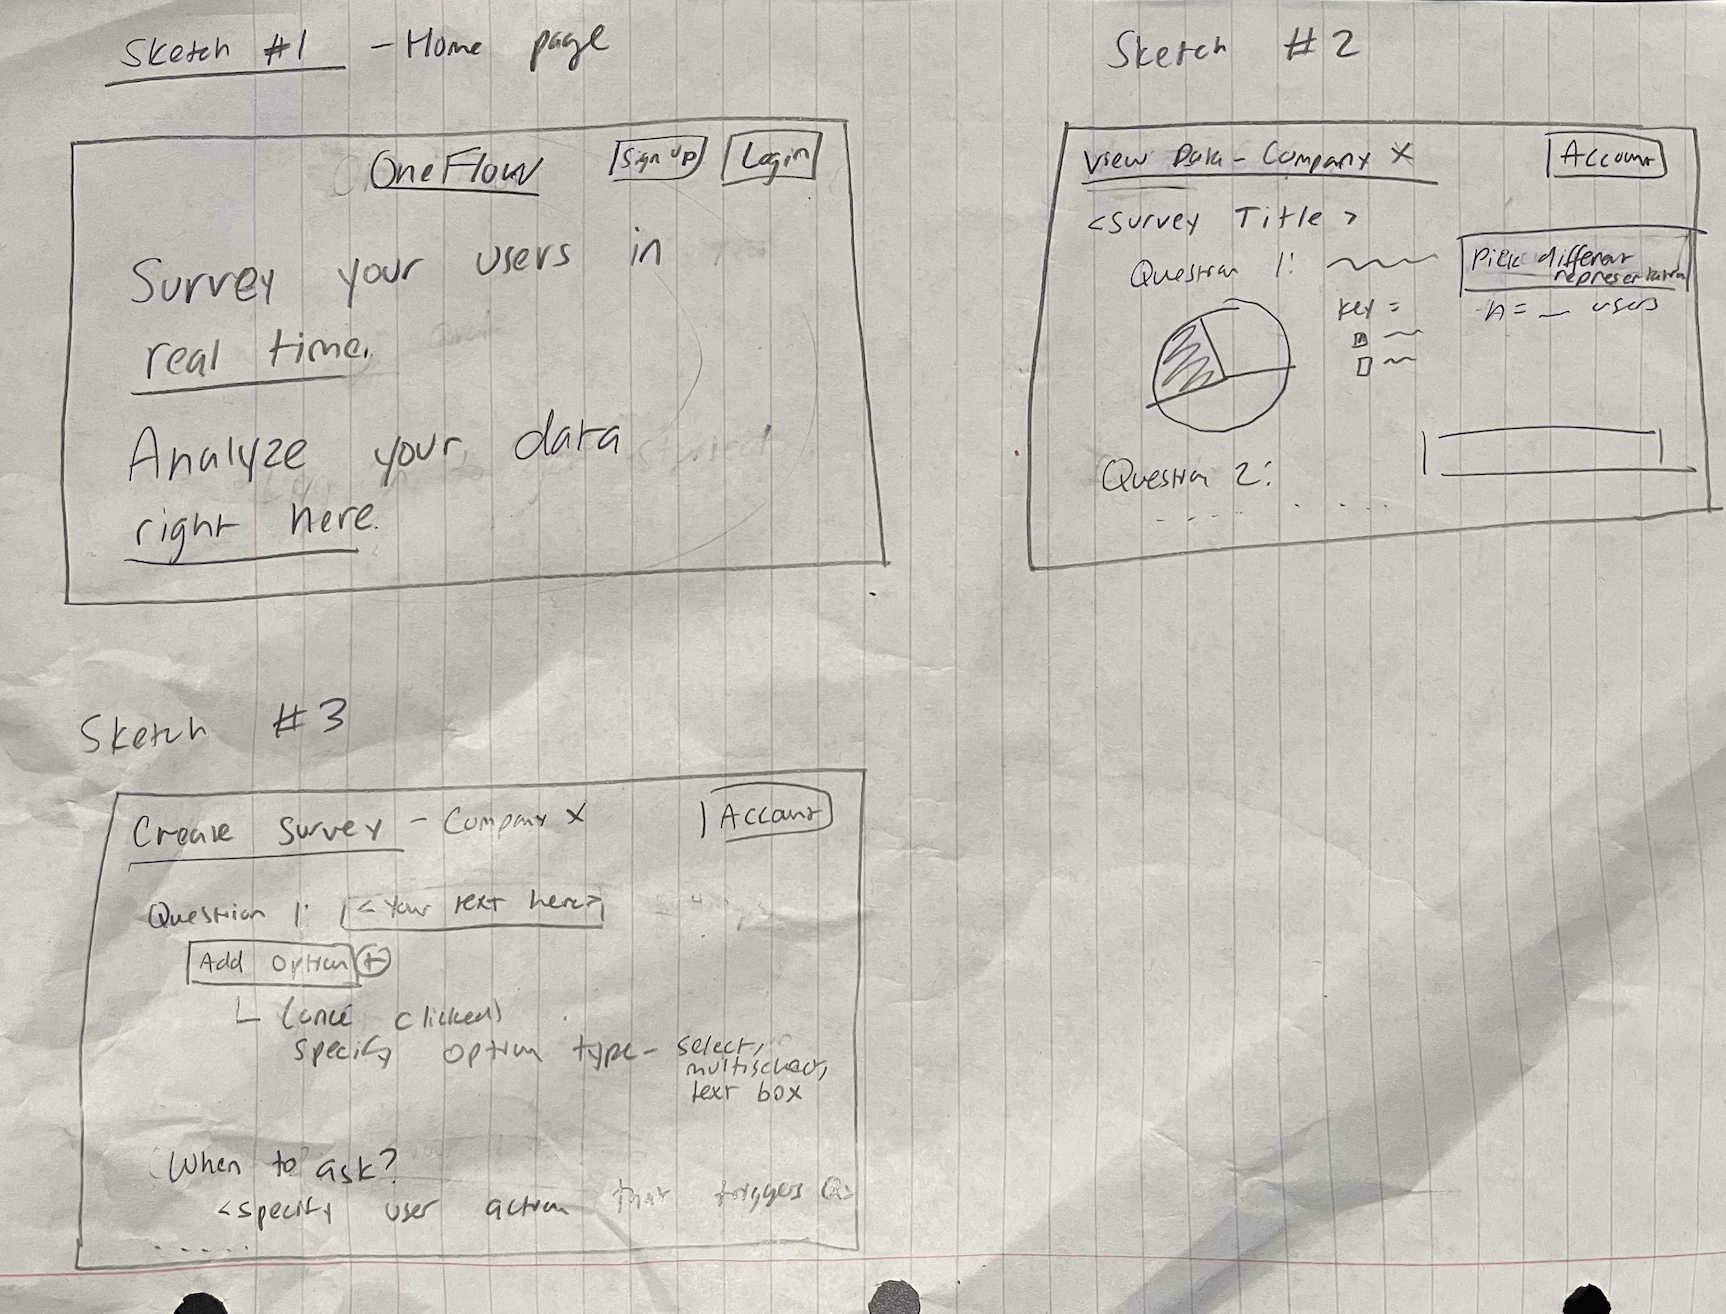 Sketch #1 - Home page
OneFlow
Sign up
Login
Survey your users in
real time.
Analyze your data
right here.
Sketch #2
View Data - Company X
Account
<Survey Title>
Question 1:
Pick different
representation
n = _ users
key =
Question 2:
Sketch #3
Create Survey - Company X
Account
Question 1: <Your text here>
Add option +
(once clicked)
specify option type - select,
multiselect,
text box
When to ask?
<specify user action that triggers Qs